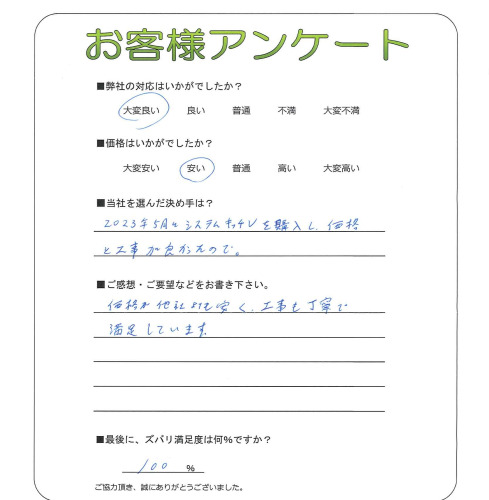 お客様アンケート
■弊社の対応はいかがでしたか？
大変良い 良い 普通 不満 大変不満
■価格はいかがでしたか？
大変安い 安い 普通 高い 大変高い
■当社を選んだ決め手は？
2023年5月にシステムキッチンを購入し、価格
と工事が良かったので。
■ご感想・ご要望などをお書き下さい。
価格が他社よりも安く、工事も丁寧で
満足しています
■最後に、ズバリ満足度は何%ですか？
100 %
ご協力頂き、誠にありがとうございました。